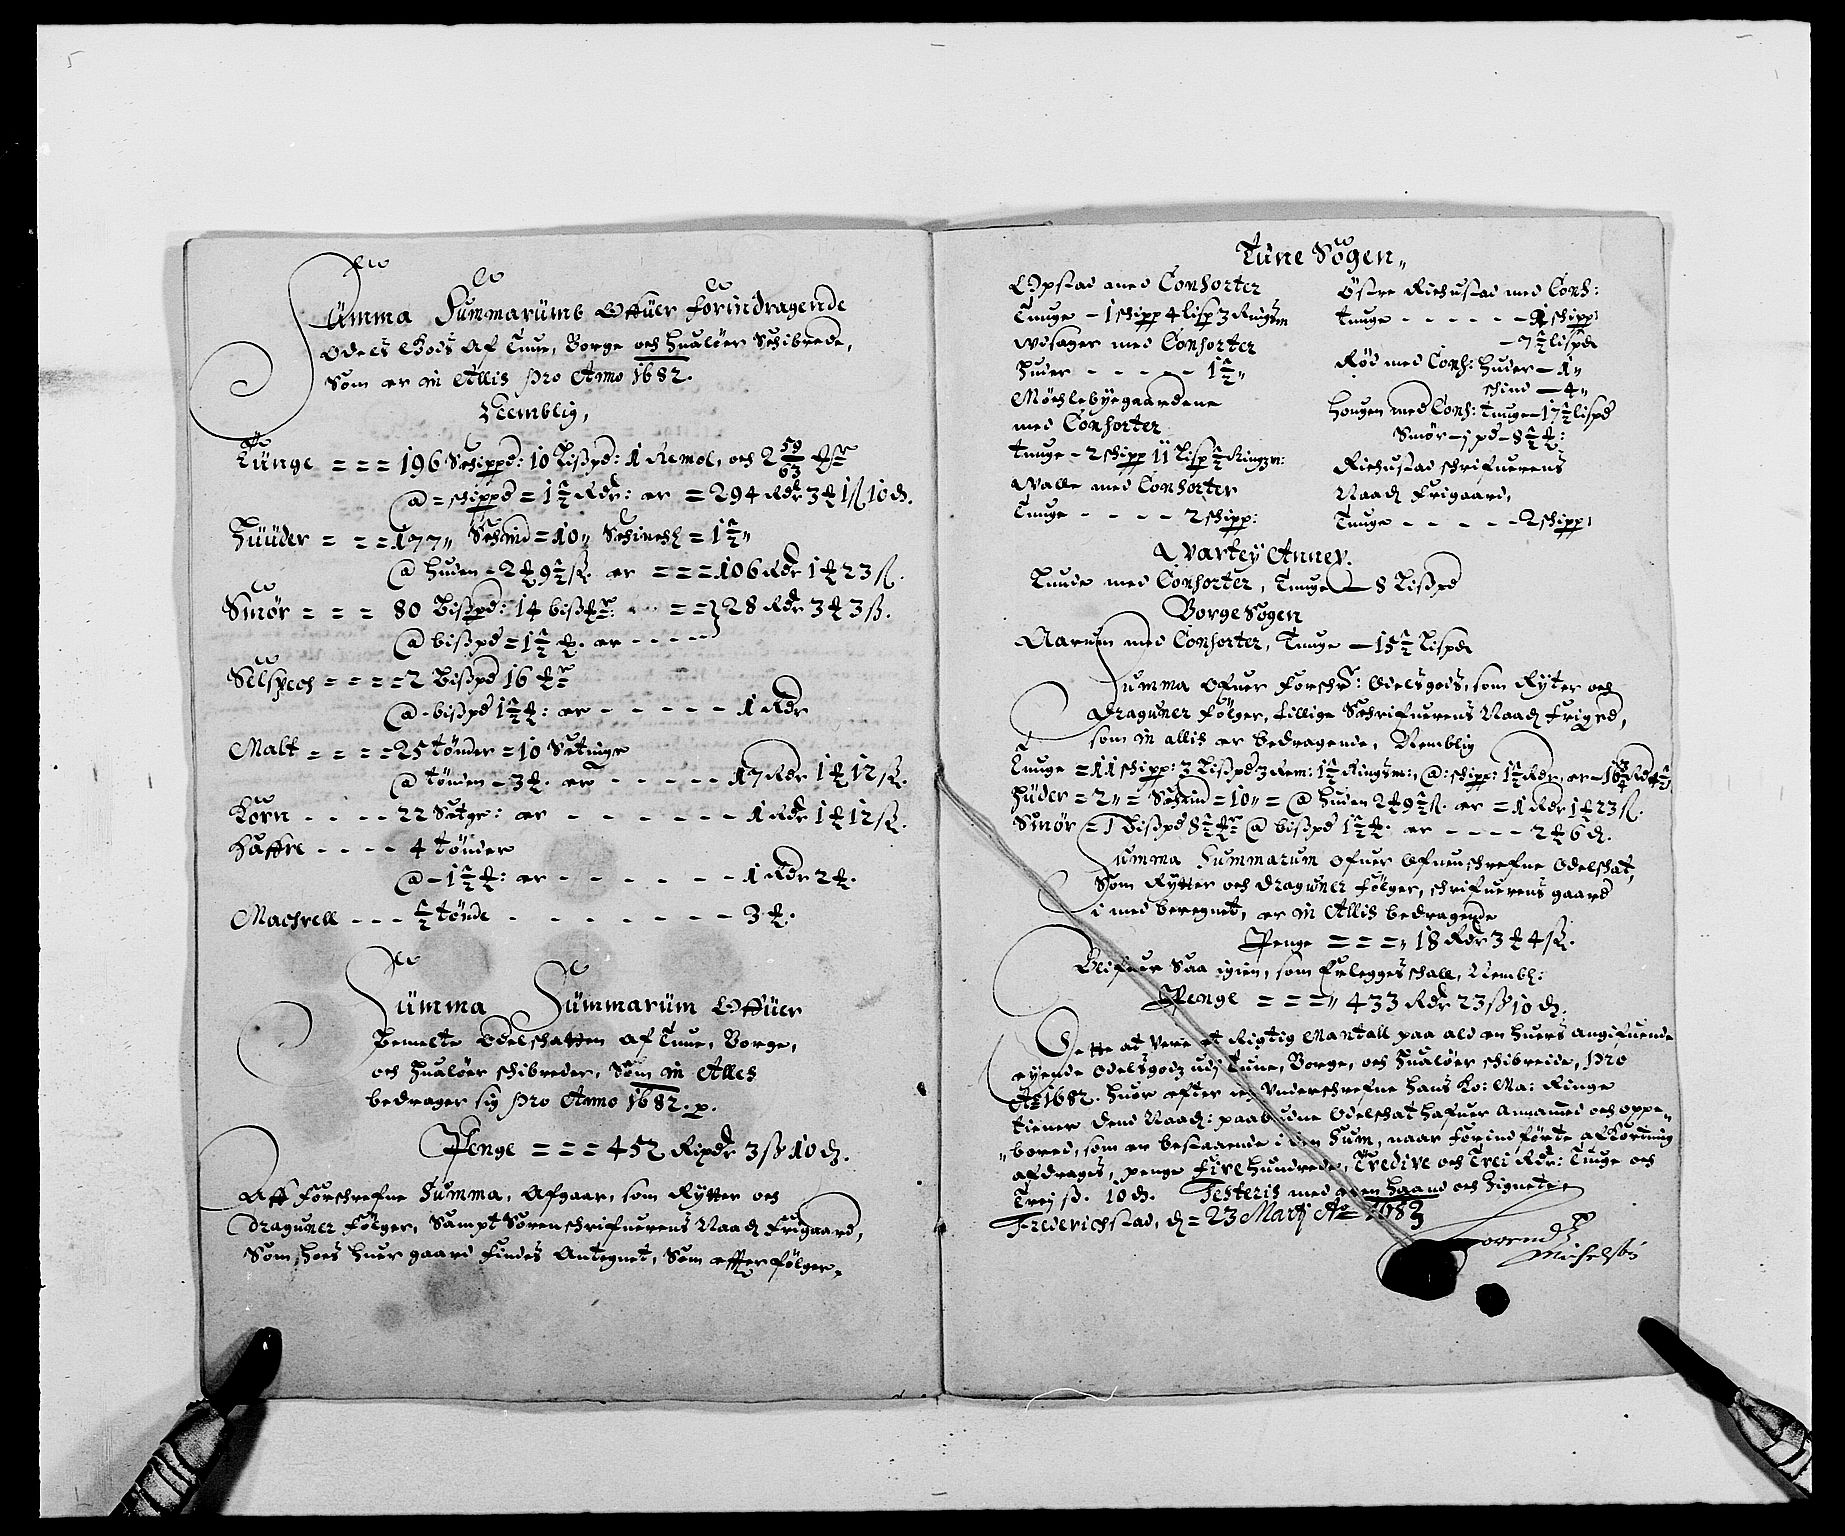 Summa Summarumb Offuer forindragende
Odels Gods Af Tune, Borge och Hualöer Schibrede,
Som er in Allis pro Anno 1682.
Nemblig,
Tunge = = = 196 Schippd: 10 Lißpd: 1 Remol, och 2 59/63
@ = schippd = 1 1/2 Rdr: er = 294 Rdr 3 1 ß 10 d.
Huuder = = = 177 Schind = 10 = 1 1/2
@ huden = 2 9 1/2 ß. er = = = 106 Rdr 1 23 ß.
Smör = = = 80 bißpd: 14 = = 28 Rdr 3 3 ß.
@ bißpd = 1 1/2 . er - - - -
Selspech = = = = 2 bißpd 16
@ bißpd 1 1/2 : er - - - - - 1 Rdr
Malt = = = = 25 tönder = 10 Setninge
@ tönden = 3 . er - - - - - 17 Rdr 1 12 ß.
Korn - - - - 22 Setge: er - - - - - - 1 Rdr 1 12 ß.
Haffre - - - - 4 tönder
@ - 1 1/2 : er - - - - - - 1 Rdr 2
Machrell - - - 1/2 tönde - - - - - - - 3
Summa Summarum Offuer
Bemelte Odelschatten af Tune, Borge,
och Hualöer schibreder, Som in Alles
bedrager sig pro Anno 1682. p.
Penge = = = 452 Rixdr 3 ß 10 d.
Aff forschrefne Summa, Afgaar, som Rytter och
Draguner fölger, Sampt Sorenschrifuerens Naad Frigaard,
Som hoes huer gaard findes Antegnet, Som effterfölger,
Tune Sogen
Opstad med Conhorter
Tunge - 1 schipp 4 lisp 3
med Conhorter
Huder - - - - - 1 1/2
Möchlebyegaardene
med Conhorter
Tunge - 2 schipp 11 Lisp 1/2
Walle med Conhorter
Tunge - - - - 2 schipp:
Östre Richustad med Conh:
Tunge - - - - - - 1 schipp:
- 7 1/2 lispd
Röd med Conh: Huder - 1
schind - 4
Hougen med Conh: Tunge - 17 1/2 lispd
Smör - 1 pd - 8 1/2
Richustad schrifuerens
Naad Frigaard,
Tunge - - - - - 2 schipp:
Wartey Annex.
Tunde med Conhorter, Tunge - 8 Lißpd
Borge Sogen
Aarum med Conhorter, Tunge - 15 1/2 Lispd
Summa Ofuer Forschr: Odelsgods, som Ryter och
Draguner Fölger, tillige Schrifuerens Naad Frigrd,
som in allis er bedragende, Nemblig
Tunge = 11 schipp: 3 Lißpd 3 Rem: 1 1/2 @: schipp: 1 1/2 Rdr, er - 16
Huder = 2 = Schind = 10 = @ huden 2 9 1/2 ß. er = 1 Rdr 1 23 ß.
Smör = 1 Bißpd 8 1/2 @ bißpd 1 1/2 . er - - - - 2 6 d.
Summa Summarum Ofuer Ofuenschrefne Odelschat,
Som Rytter och Draguner Fölger, schrifuerens gaard
i med beregnet, er in Allis bedragende
Penge = = = 18 Rdr 3 4 ß.
Blifuer Saa igien, som Erlegges schall, Nembl:
Penge = = = 433 Rdr 23 ß 10 d.
Dette at Vere et Rigtig Mantall paa ald en huers angifuende
eyende Odelsgodz udj Tune, Borge, och Hualöer schibreide, pro
Ao 1682. Huor efter ieg Underschrefne Hans Ko: Ma: Ringe
tiener dend Naad: paabudne Odelschat hafuer Annamed och oppe-
bored, som er bestaaende i den Sum, naar forindförte afkortning
afdrages, penge Fire Hundrede, Tredive och Trei Rdr: Tiuge och
Trej ß. 10 d. Testeris med egen Haand och Zignete
Frederichstad, d = 23 Martj Ao 1683
Michelsön